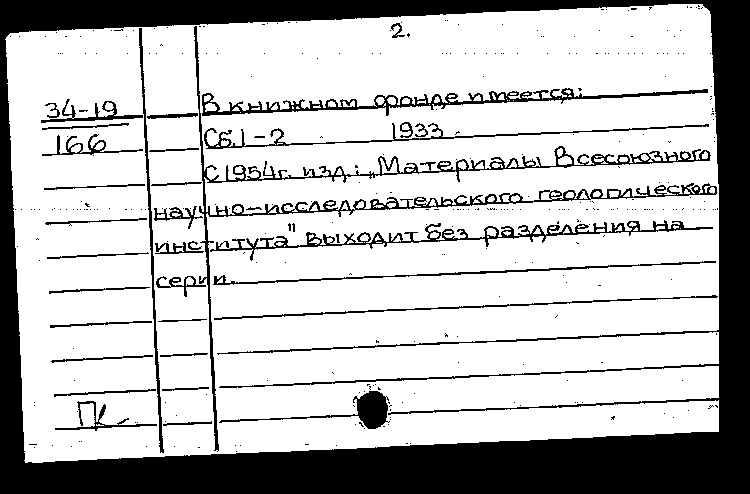 2.
34-19 В книжном фонде имеется:
166 Сб.1-2 1933.
С 1954г. изд.: „Материалы Всесоюзного
научно-исследовательского геологического
института" выходит без разделения на
серии.
ПК